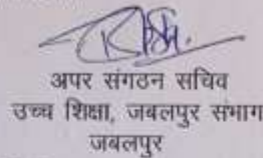 अपर संगठन सचिव
उच्च शिक्षा, जबलपुर संभाग
जबलपुर